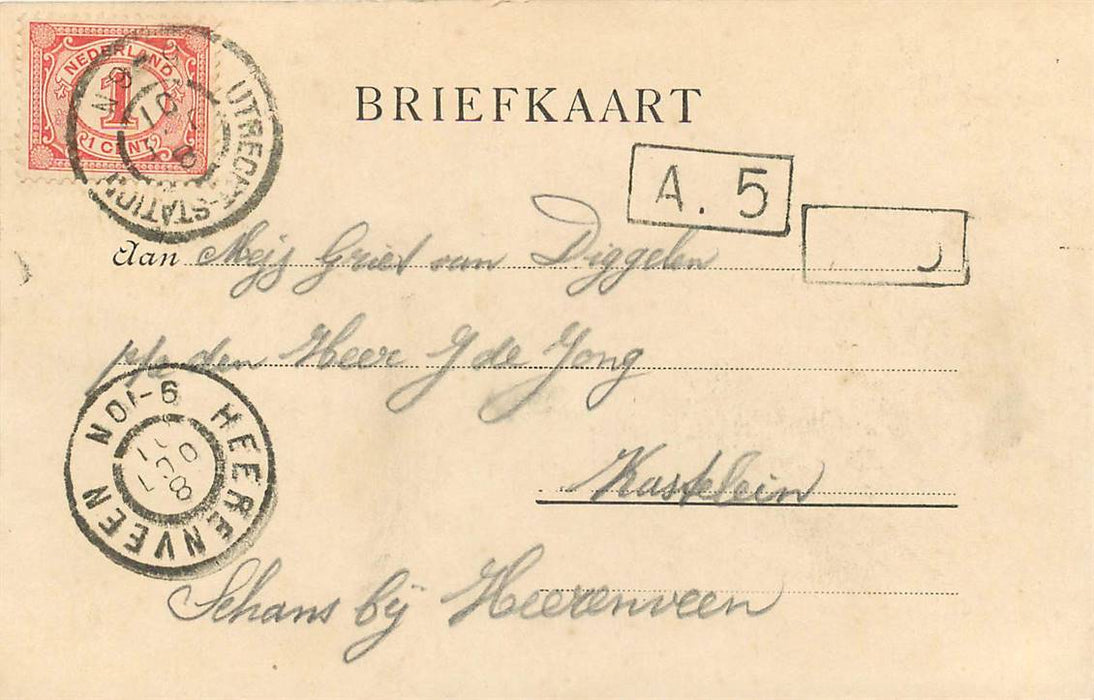 NEDERLAND
1
1 CENT
UTRECHT-STATION
BRIEFKAART
A. 5
Aan Mejj Griet van Diggelen
p/a den Heer J de Jong
Kastelein
Schans bij Heerenveen
HEERENVEEN
9-10N
8 OCT